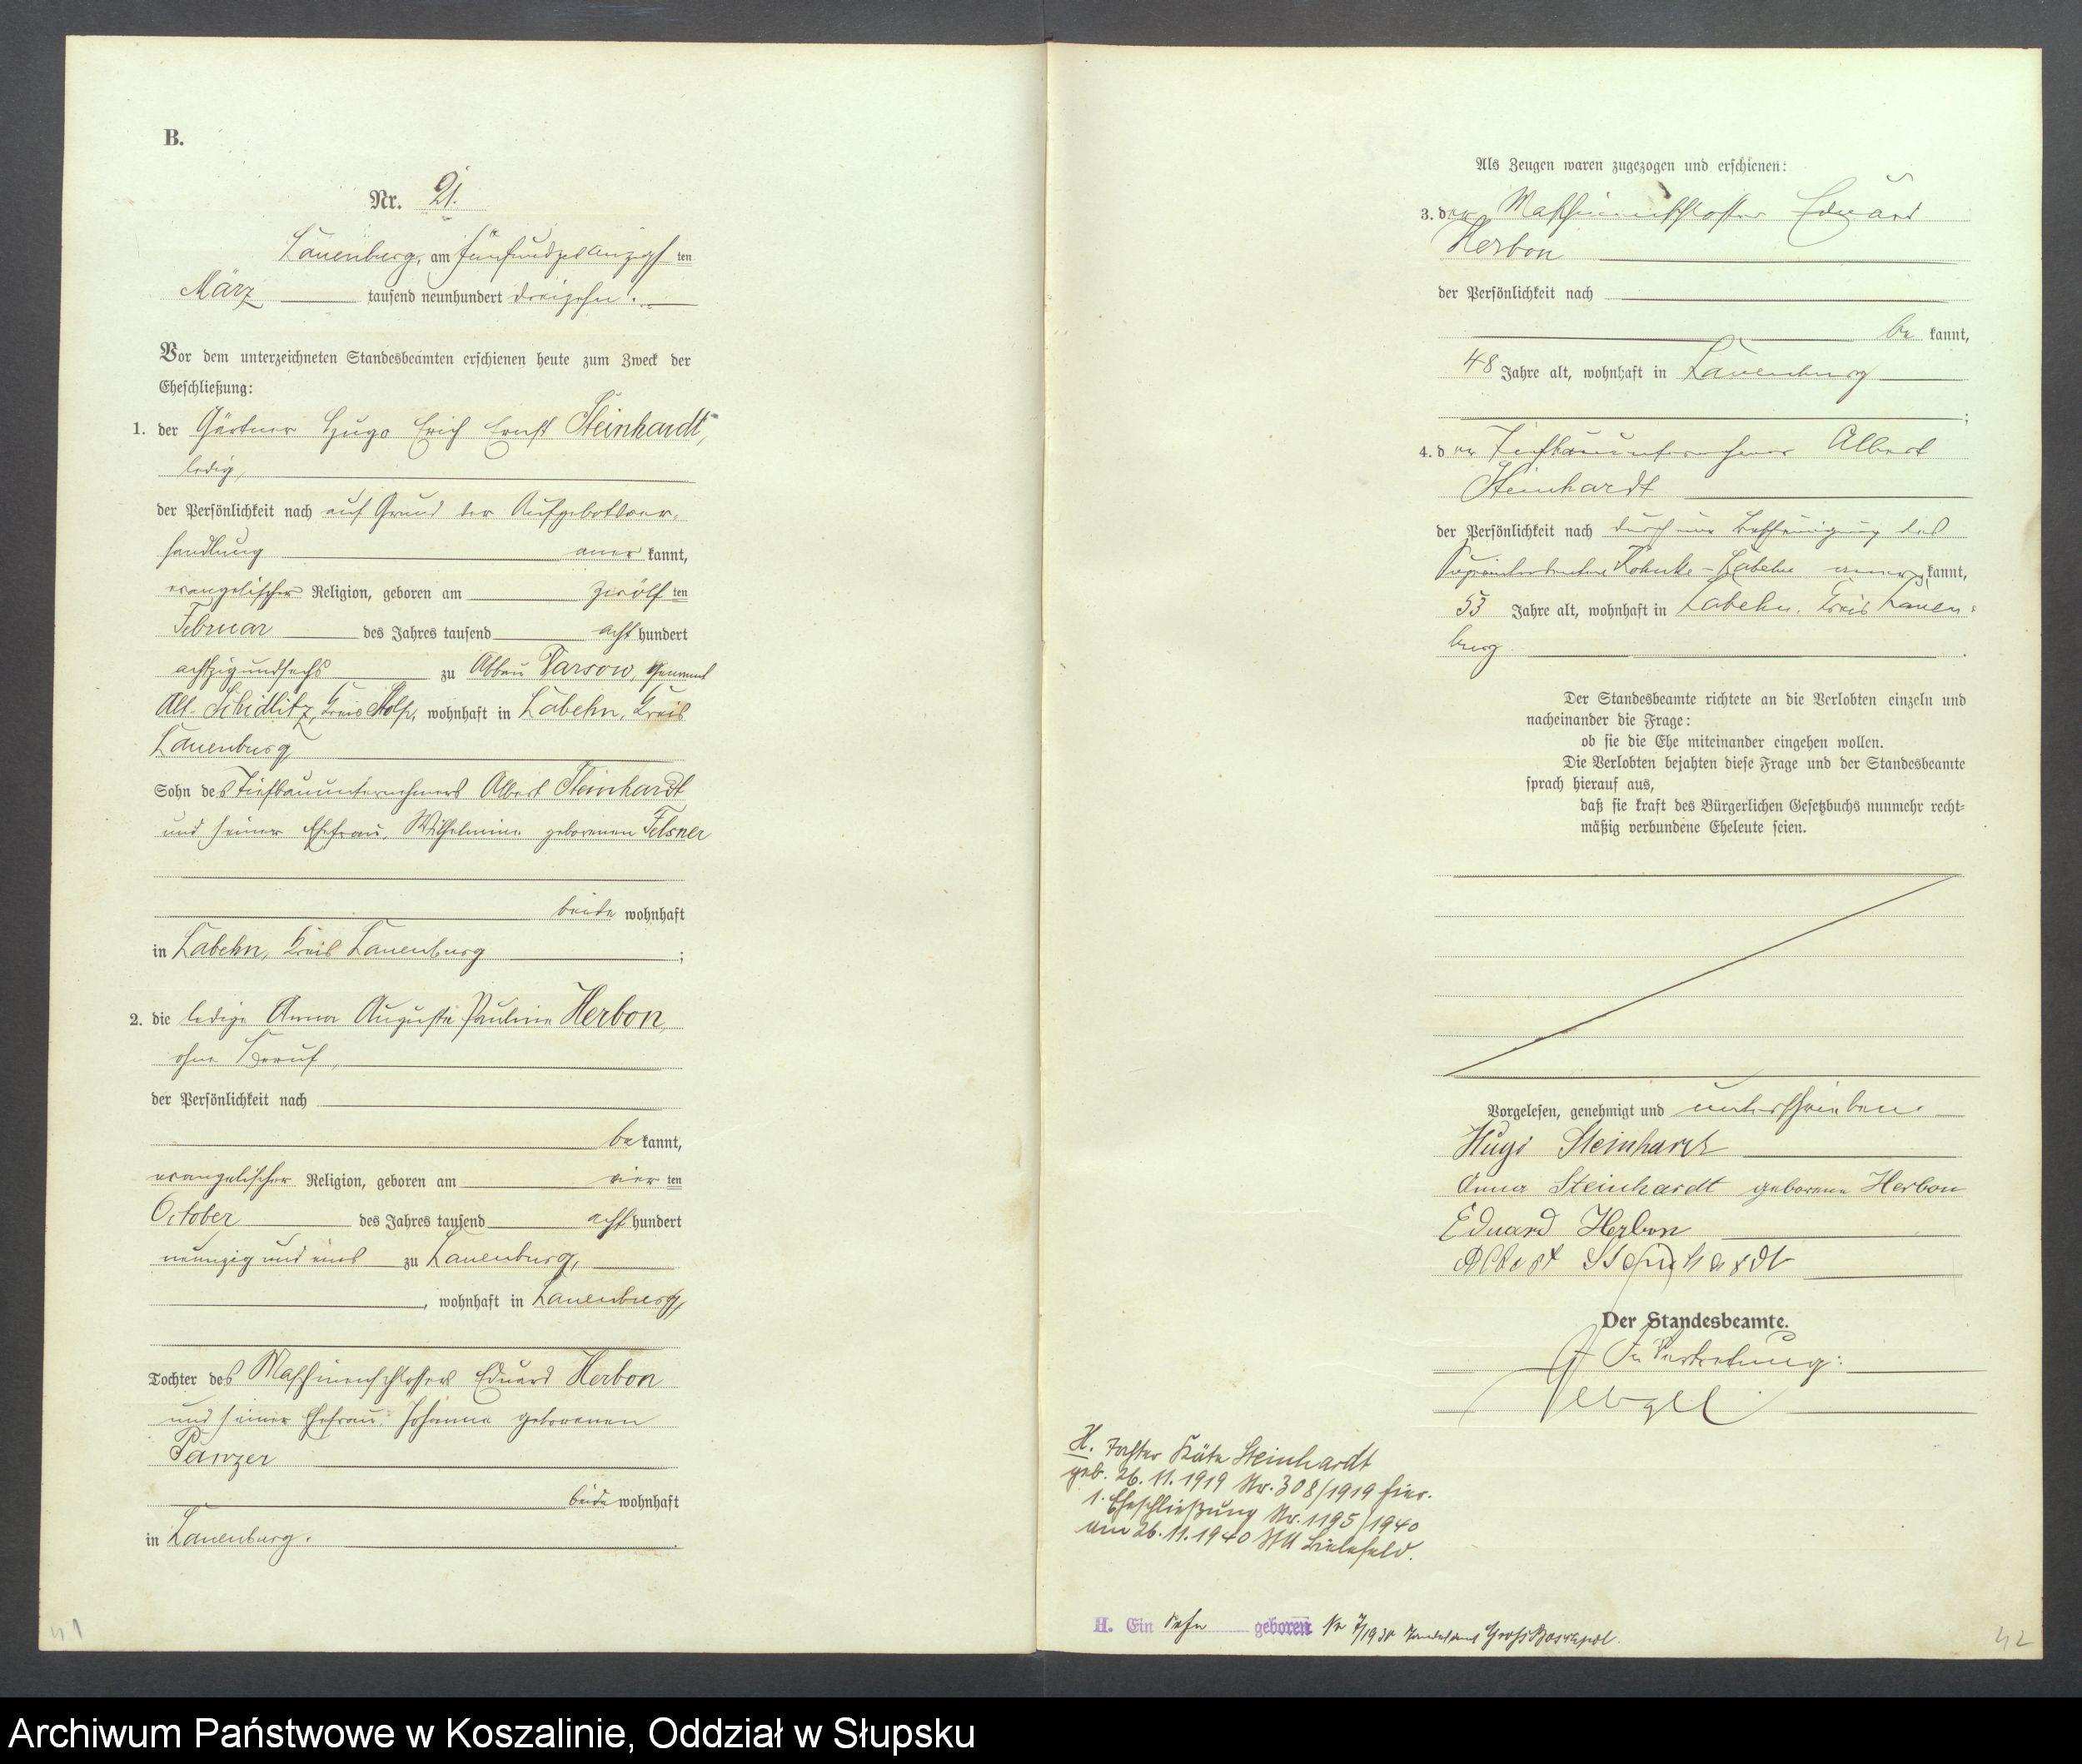 B.
Nr. 21.
Lauenburg, am fünfundzwanzigsten
März tausend neunhundert dreizehn.
Vor dem unterzeichneten Standesbeamten erschienen heute zum Zweck der
Eheschließung:
1. der Gärtner Hugo Erich Ernst Steinhardt,
ledig,
der Persönlichkeit nach auf Grund der Aufgebotsver-
handlung anerkannt,
evangelischer Religion, geboren am zwölften
Februar des Jahres tausend achthundert
achtzigundsechs zu Abbau Varsow, Gemeinde
Alt-Schidlitz, Kreis Stolp, wohnhaft in Labehn, Kreis
Lauenburg
Sohn des Tiefbauunternehmers Albert Steinhardt
und seiner Ehefrau, Wilhelmine geborenen Felsner
beide wohnhaft
in Labehn, Kreis Lauenburg;
2. die ledige Anna Auguste Pauline Herbon,
ohne Beruf,
der Persönlichkeit nach
bekannt,
evangelischer Religion, geboren am vierten
October des Jahres tausend achthundert
neunzig und eins zu Lauenburg,
, wohnhaft in Lauenburg,
Tochter des Maschinenschlossers Eduard Herbon
und seiner Ehefrau Johanna geborenen
Panzer
beide wohnhaft
in Lauenburg.
41
Als Zeugen waren zugezogen und erschienen:
3. der Maschinenschlosser Eduard
Herbon
der Persönlichkeit nach
bekannt,
48 Jahre alt, wohnhaft in Lauenburg
;
4. der Tiefbauunternehmer Albert
Steinhardt
der Persönlichkeit nach durch eine Bescheinigung des
Labehn anerkannt,
53 Jahre alt, wohnhaft in Labehn, Kreis Lauen-
burg.
Der Standesbeamte richtete an die Verlobten einzeln und
nacheinander die Frage:
ob sie die Ehe miteinander eingehen wollen.
Die Verlobten bejahten diese Frage und der Standesbeamte
sprach hierauf aus,
daß sie kraft des Bürgerlichen Gesetzbuchs nunmehr recht-
mäßig verbundene Eheleute seien.
Vorgelesen, genehmigt und unterschrieben.
Hugo Steinhardt
Anna Steinhardt geborene Herbon
Eduard Herbon
Albert Steinhardt
Der Standesbeamte.
In Vertretung:
H. Tochter Käte Steinhardt
geb. 26.11.1919 Nr. 308/1919 hier.
1. Eheschließung Nr. 1195/1940
am 26.11.1940 StA Bielefeld.
H. Ein Sohn geboren Nr 7/1930 Standesamt Groß Boschpol.
42
Archiwum Państwowe w Koszalinie, Oddział w Słupsku